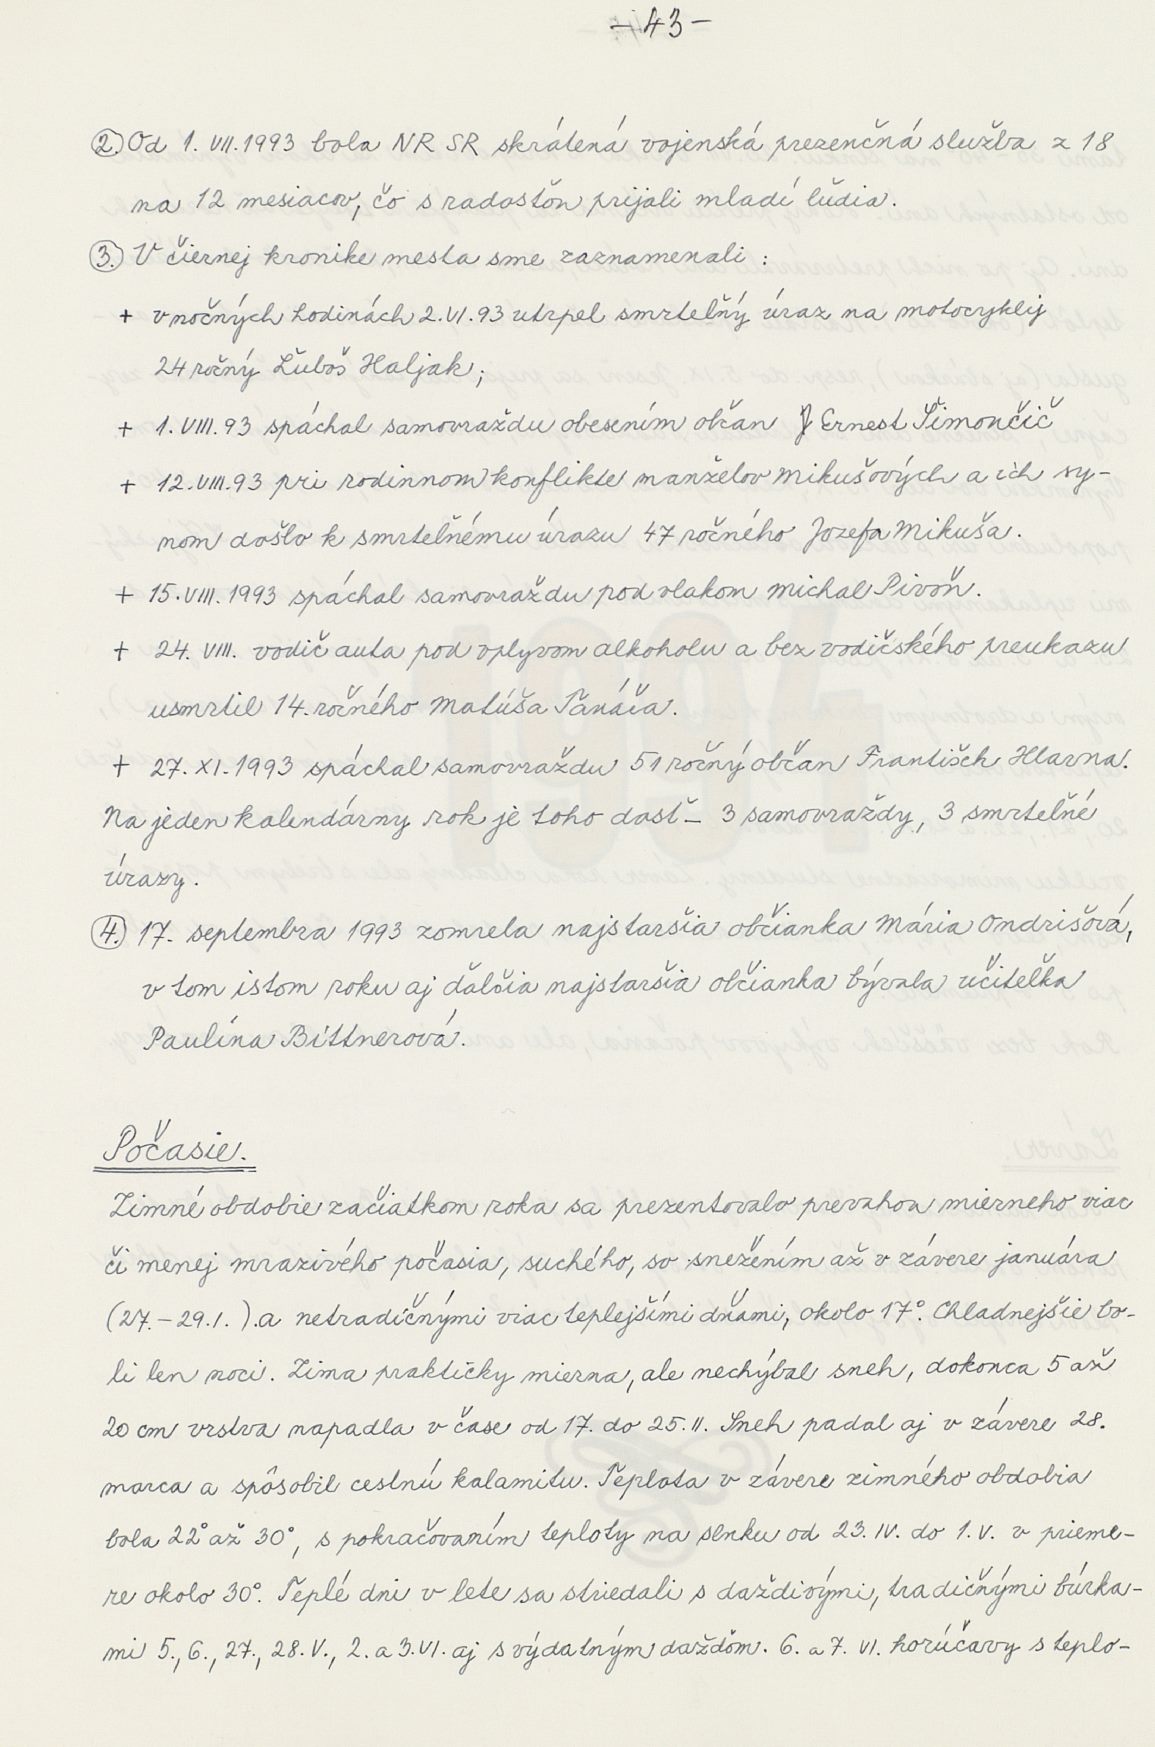 - 43 -
2. Od 1. VII. 1993 bola NR SR skrátená vojenská prezenčná služba z 18
na 12 mesiacov, čo s radosťou prijali mladí ľudia.
3. V čiernej kronike mesta sme zaznamenali :
+ v nočných hodinách 2. VI. 93 utrpel smrteľný úraz na motocykli
24 ročný Ľuboš Haljak;
+ 1. VIII. 93 spáchal samovraždu obesením občan Ernest Šimončič
+ 12. VIII. 93 pri rodinnom konflikte manželov Mikušových a ich sy-
nom došlo k smrteľnému úrazu 47 ročného Jozefa Mikuša.
+ 15. VIII. 1993 spáchal samovraždu pod vlakom Michal Pivoň.
+ 24. VIII. vodič auta pod vplyvom alkoholu a bez vodičského preukazu
usmrtil 14. ročného Matúša
+ 27. XI. 1993 spáchal samovraždu 51 ročný občan František Hlavna.
Na jeden kalendárny rok je toho dosť - 3 samovraždy, 3 smrteľné
úrazy.
4. 17. septembra 1993 zomrela najstaršia občianka Mária Ondrišová,
v tom istom roku aj ďalšia najstaršia občianka bývala učiteľka
Paulína Bittnerová.
Počasie.
Zimné obdobie začiatkom roka sa prezentovalo prevahou mierneho viac
či menej mrazivého počasia, suchého, so snežením až v závere januára
(27. - 29. I. ). a netradičnými viac teplejšími dňami, okolo 17°. Chladnejšie bo-
li len noci. Zima prakticky mierna, ale nechýbal sneh, dokonca 5 až
20 cm vrstva napadla v čase od 17. do 25. II. Sneh padal aj v závere 28.
marca a spôsobil cestnú kalamitu. Teplota v závere zimného obdobia
bola 22° až 30°, s pokračovaním teploty na slnku od 23. IV. do 1. V. v prieme-
re okolo 30°. Teplé dni v lete sa striedali s daždivými, tradičnými búrka-
mi 5., 6., 27., 28. V., 2. a 3. VI. aj s výdatným dažďom. 6. a 7. VI. horúčavy s teplo-